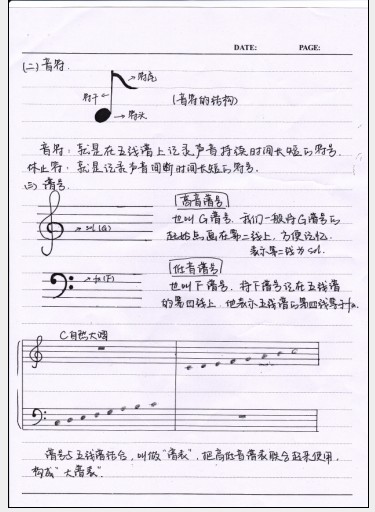 DATE: PAGE:
(二) 音符.
符尾
符干
符头
(音符的结构)
音符: 就是在五线谱上记录声音持续时间长短的符号.
休止符: 就是记录声音间断时间长短的符号.
(三) 谱号.
高音谱号
sol (G)
也叫 G谱号. 我们一般将G谱号的
起始点画在第二线上, 方便记忆.
表示第二线为 sol.
低音谱号
fa (F)
也叫 F 谱号. 将F谱号记在五线谱
的第四线上. 他表示五线谱的第四线等于fa.
C自然大调
谱号与五线谱结合, 叫做"谱表". 把高低音谱表联合起来使用,
构成"大谱表".